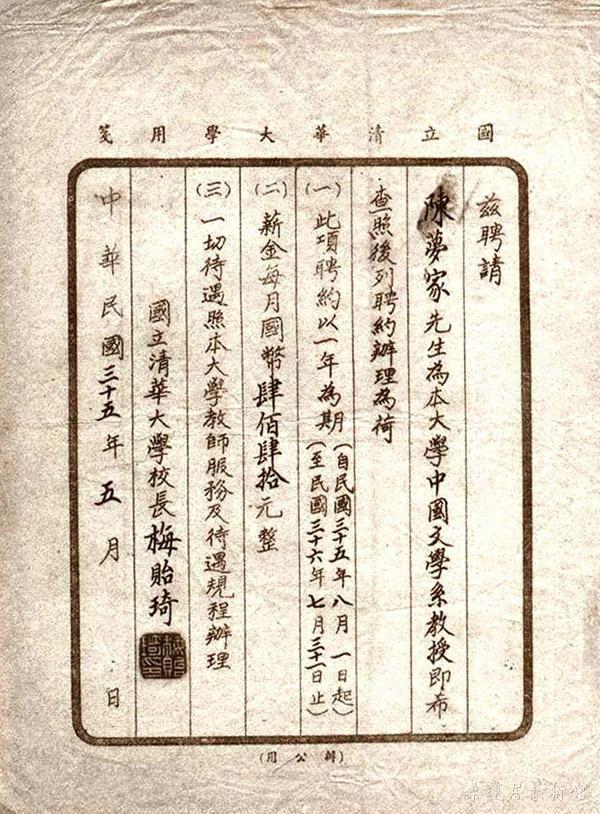 國立清華大學用箋
茲聘請
陳夢家先生為本大學中國文學系教授即希
查照後列聘約辦理為荷
(一) 此項聘約以一年為期(自民國三十五年八月一日起
至民國三十六年七月三十一日止)
(二) 薪金每月國幣肆佰肆拾元整
(三) 一切待遇照本大學教師服務及待遇規程辦理
國立清華大學校長梅貽琦
中華民國三十五年五月 日
(辦公用)